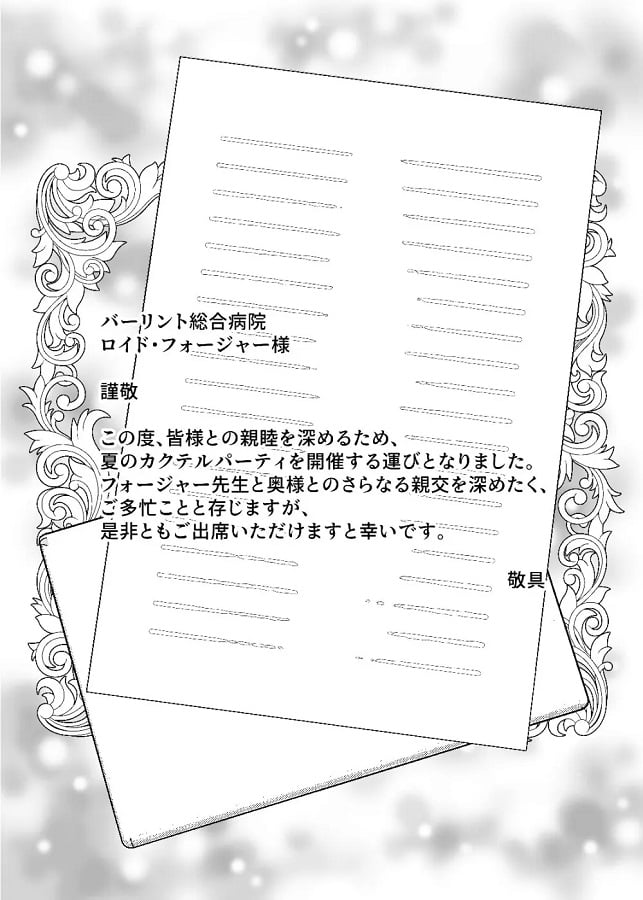 バーリント総合病院
ロイド・フォージャー様
謹敬
この度、皆様との親睦を深めるため、
夏のカクテルパーティを開催する運びとなりました。
フォージャー先生と奥様とのさらなる親交を深めたく、
ご多忙ことと存じますが、
是非ともご出席いただけますと幸いです。
敬具